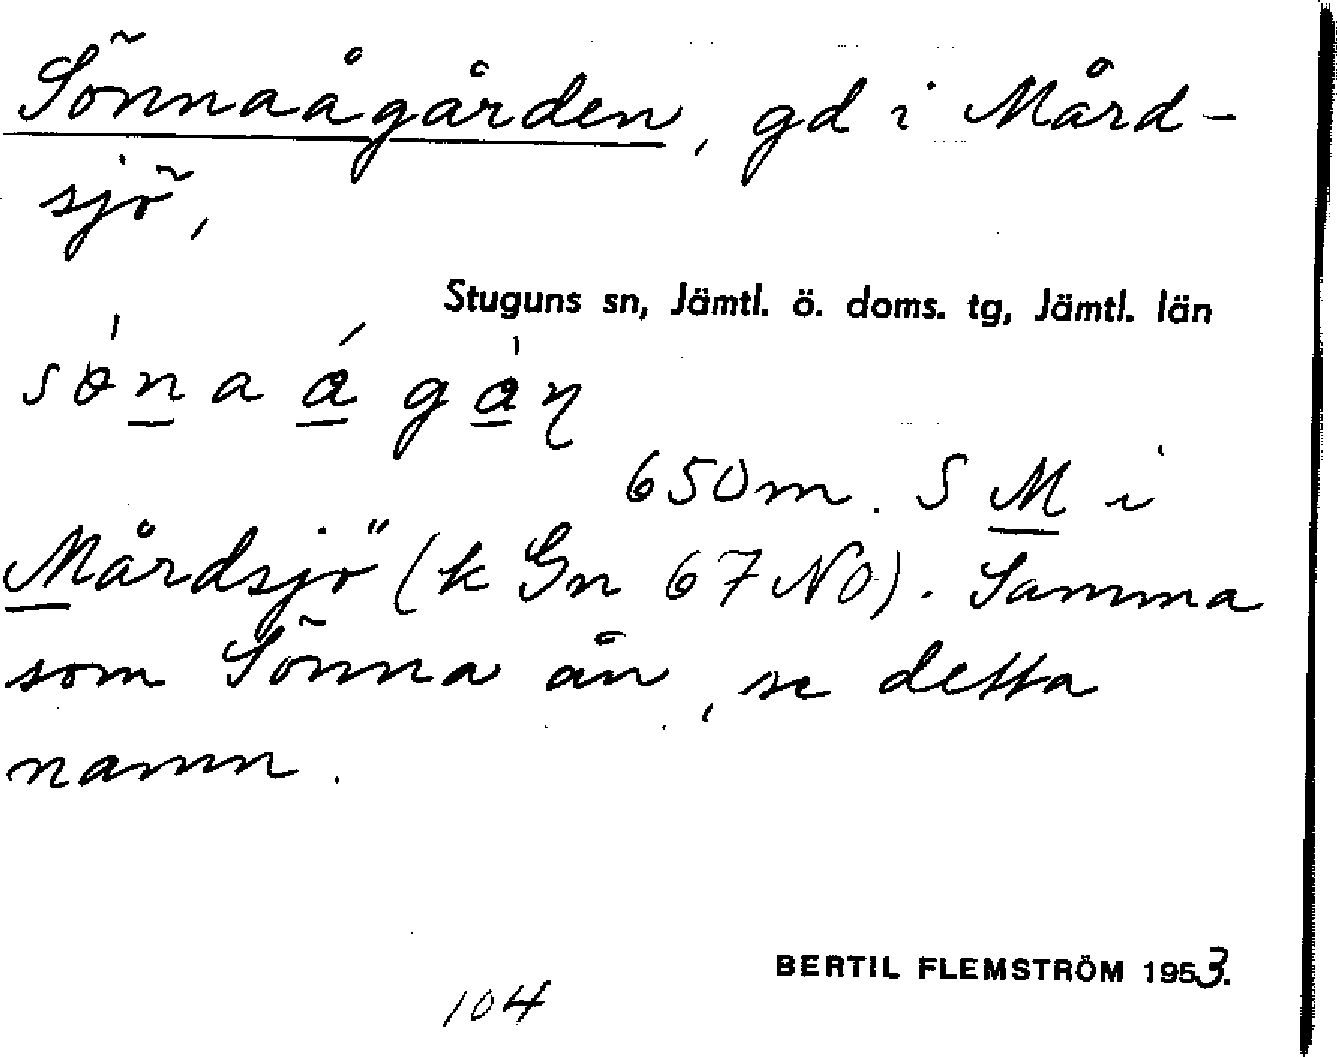 Sönnaågården, gd i Mård-
sjö,
Stuguns sn, Jämtl. ö. doms. tg, Jämtl. län
650 m. S M i
Mårdsjö (k Gn 67 NO). Samma
som Sönna ån, se detta
namn.
BERTIL FLEMSTRÖM 1953.
104